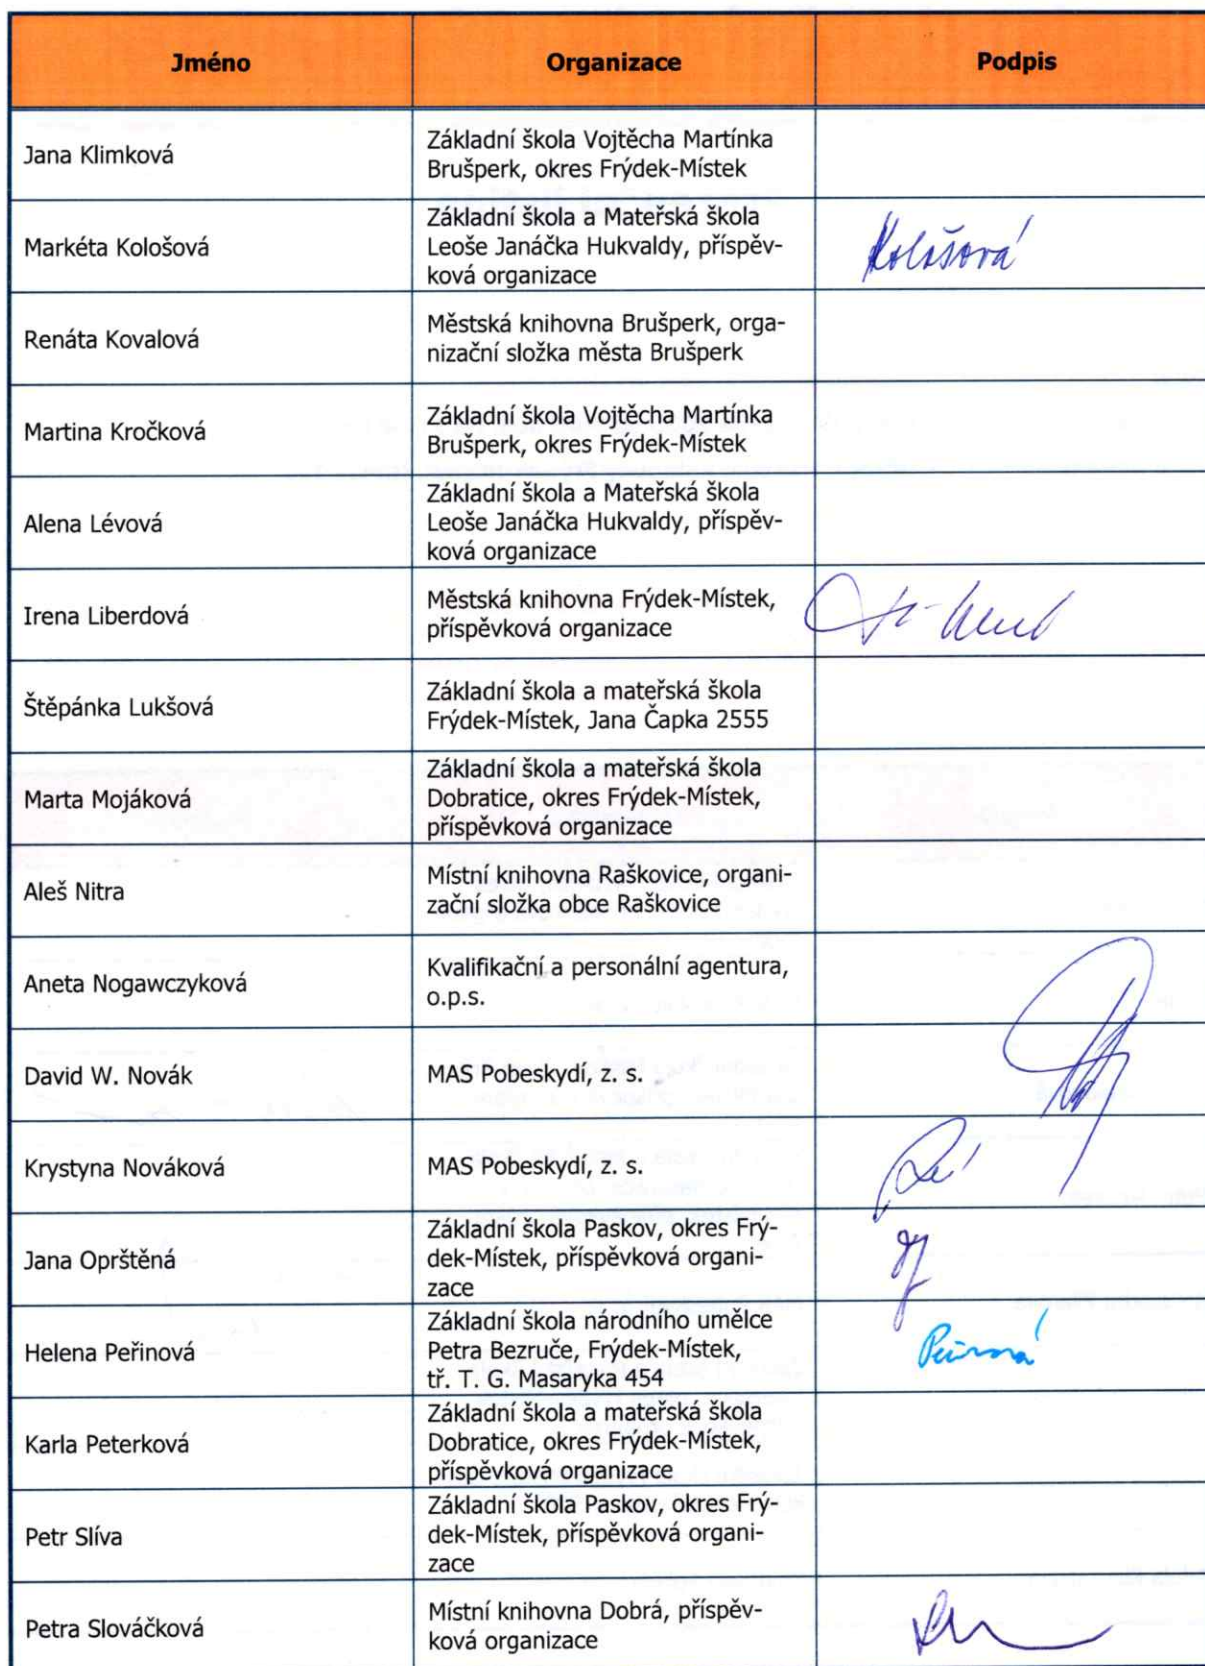 Jméno Organizace Podpis
Jana Klimková
Základní škola Vojtěcha Martínka
Brušperk, okres Frýdek-Místek
Markéta Kološová
Základní škola a Mateřská škola
Leoše Janáčka Hukvaldy, příspěv-
ková organizace
Kološová
Renáta Kovalová
Městská knihovna Brušperk, orga-
nizační složka města Brušperk
Martina Kročková
Základní škola Vojtěcha Martínka
Brušperk, okres Frýdek-Místek
Alena Lévová
Základní škola a Mateřská škola
Leoše Janáčka Hukvaldy, příspěv-
ková organizace
Irena Liberdová
Městská knihovna Frýdek-Místek,
příspěvková organizace
Štěpánka Lukšová
Základní škola a mateřská škola
Frýdek-Místek, Jana Čapka 2555
Marta Mojáková
Základní škola a mateřská škola
Dobratice, okres Frýdek-Místek,
příspěvková organizace
Aleš Nitra
Místní knihovna Raškovice, organi-
zační složka obce Raškovice
Aneta Nogawczyková
Kvalifikační a personální agentura,
o.p.s.
David W. Novák
MAS Pobeskydí, z. s.
Krystyna Nováková
MAS Pobeskydí, z. s.
Jana Oprštěná
Základní škola Paskov, okres Frý-
dek-Místek, příspěvková organi-
zace
Helena Peřinová
Základní škola národního umělce
Petra Bezruče, Frýdek-Místek,
tř. T. G. Masaryka 454
Karla Peterková
Základní škola a mateřská škola
Dobratice, okres Frýdek-Místek,
příspěvková organizace
Petr Slíva
Základní škola Paskov, okres Frý-
dek-Místek, příspěvková organi-
zace
Petra Slováčková
Místní knihovna Dobrá, příspěv-
ková organizace